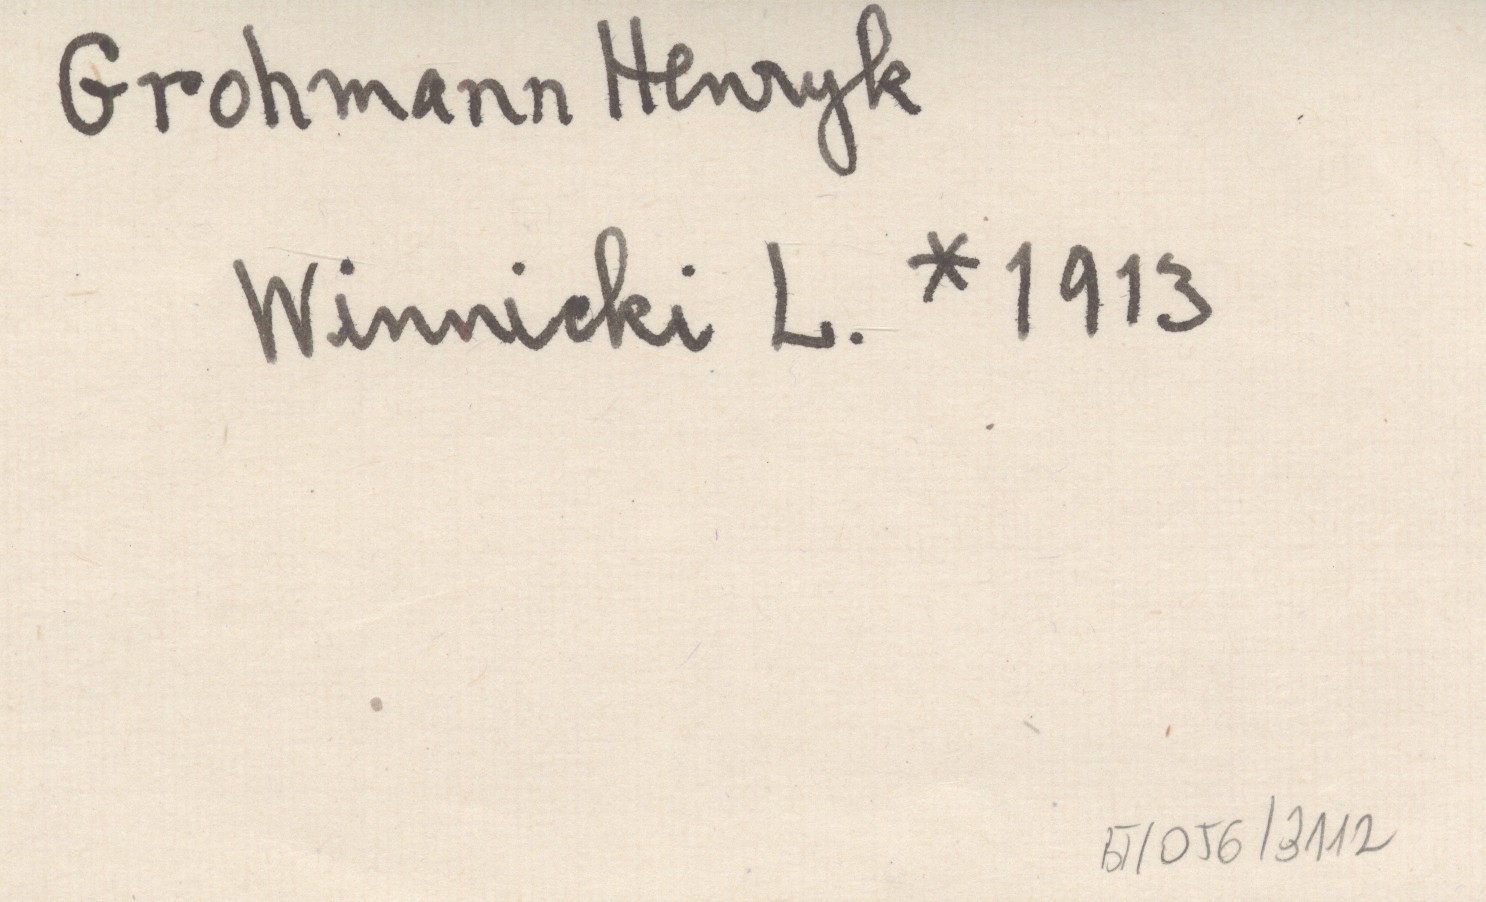 Grohmann Henryk
Winnicki L. *1913
/056/3112